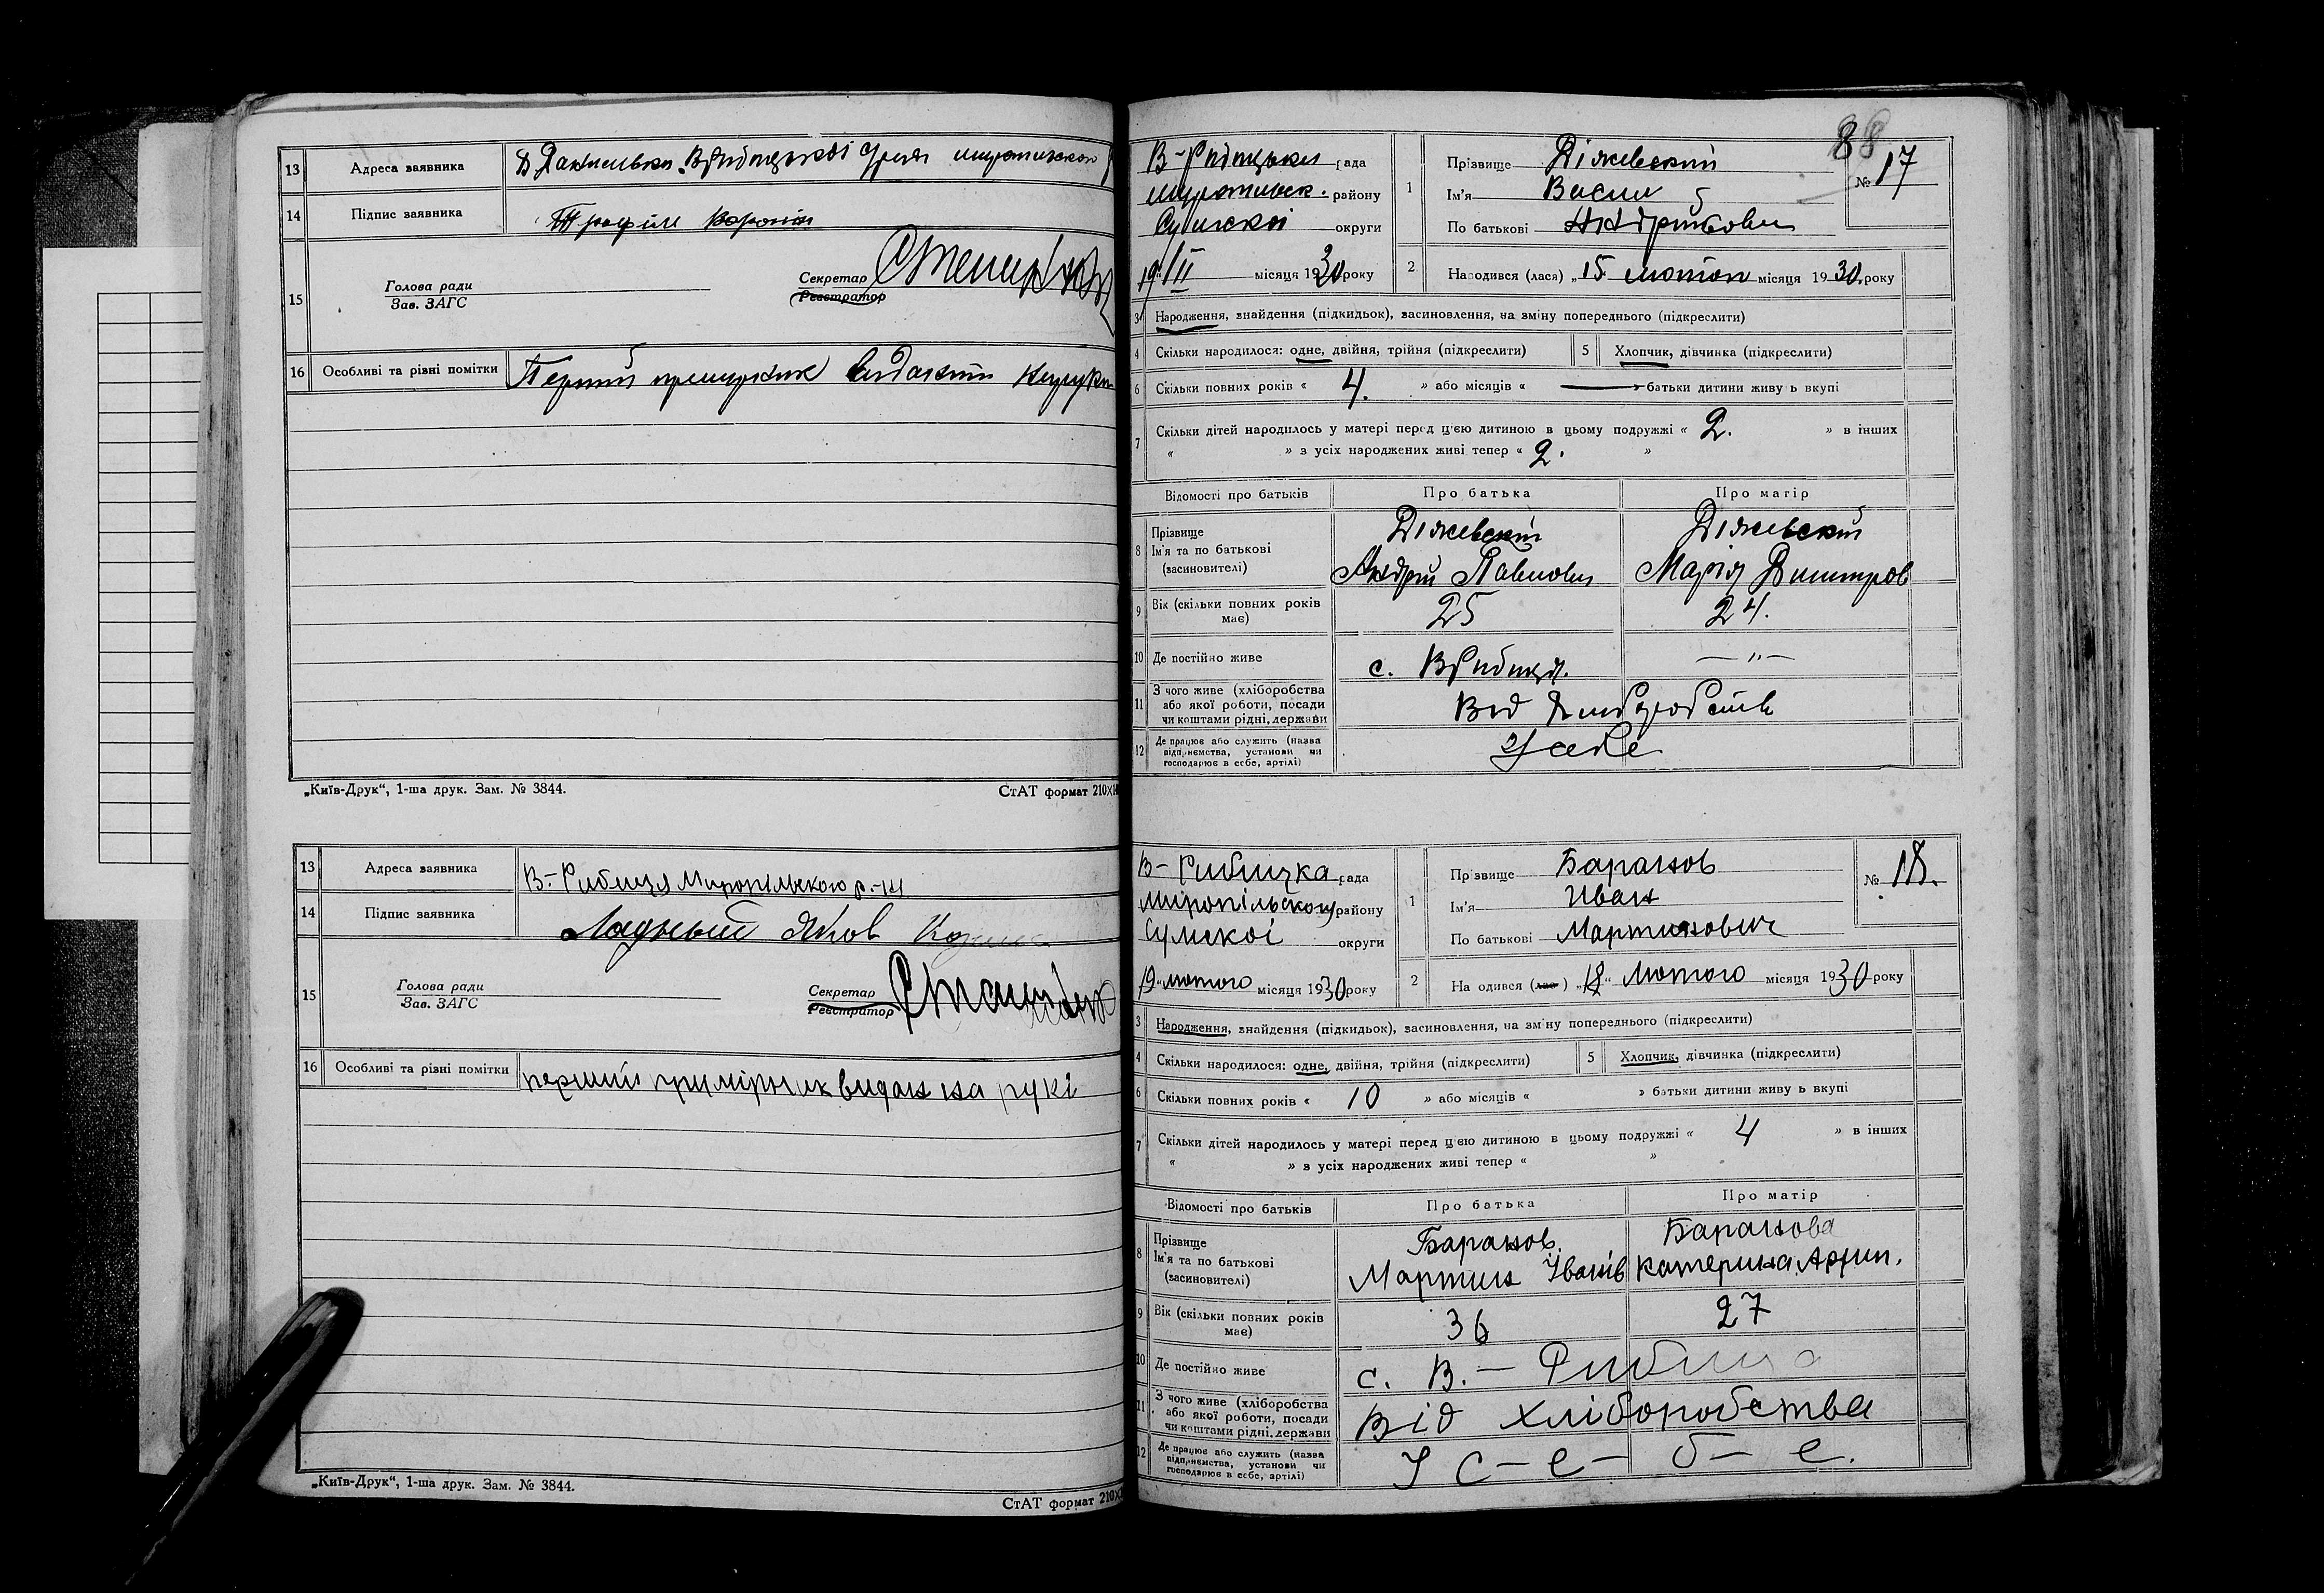 13 Адреса заявника
14 Підпис заявника
15 Голова ради
Зав. ЗАГС
Секретар
Реєстратор
16 Особливі та різні помітки Перший
„Київ-Друк“, 1-ша друк. Зам. № 3844.
СтАТ формат 210Х
13 Адреса заявника В.-Рибиця Миропільського р.-н
14 Підпис заявника Яков
15 Голова ради
Зав. ЗАГС
Секретар
Реєстратор
16 Особливі та різні помітки перший примірник видан на рукі
„Київ-Друк“, 1-ша друк. Зам. № 3844.
СтАТ формат 210Х
88
рада
району
Сумскої округи
19/II місяця 1930 року
1 Прізвище Діжевский
Ім'я Васил
По батькові Андріьович
№ 17
2 Народився (лася) „15 лютого місяця 1930 року
3 Народження, знайдення (підкидьок), засиновлення, на зміну попереднього (підкреслити)
4 Скільки народилося: одне, двійня, трійня (підкреслити) 5 Хлопчик, дівчинка (підкреслити)
6 Скільки повних років « 4. » або місяців « — » батьки дитини живуть вкупі
7 Скільки дітей народилось у матері перед цією дитиною в цьому подружжі « 2. » в інших
« » з усіх народжених живі тепер « 2. »
Відомості про батьків Про батька Про матір
8 Прізвище
Ім'я та по батькові
(засиновителі)
Діжевский Діжевский
Андрій Павлович Марія Дмитров
9 Вік (скільки повних років має) 25 24.
10 Де постійно живе с. В Рибиця. —"—
11 З чого живе (хліборобства або якої роботи, посади чи коштами рідні, держави Від
12 Де працює або служить (назва підприємства, установи чи господарює в себе, артілі) У себе
В-Рибицка рада
Миропільского району
Сумскої округи
19„ лютого місяця 1930 року
1 Прізвище Баранов
Ім'я Иван
По батькові Мартинович
№ 18.
2 На одився (лас ) „18“ Лютого місяця 1930 року
3 Народження, знайдення (підкидьок), засиновлення, на зміну попереднього (підкреслити)
4 Скільки народилося: одне, двійня, трійня (підкреслити) 5 Хлопчик, дівчинка (підкреслити)
6 Скільки повних років « 10 » або місяців « » батьки дитини живуть вкупі
7 Скільки дітей народилось у матері перед цією дитиною в цьому подружжі « 4 » в інших
« » з усіх народжених живі тепер « »
Відомості про батьків Про батька Про матір
8 Прізвище
Ім'я та по батькові
(засиновителі)
Баранов. Баранова
Мартин Іванів Катерина Архип.
9 Вік (скільки повних років має) 36 27
10 Де постійно живе с. В.- Рибица
11 З чого живе (хліборобства або якої роботи, посади чи коштами рідні, держави Від хліборобства
12 Де працює або служить (назва підприємства, установи чи господарює в себе, артілі) У с-е-б-е.